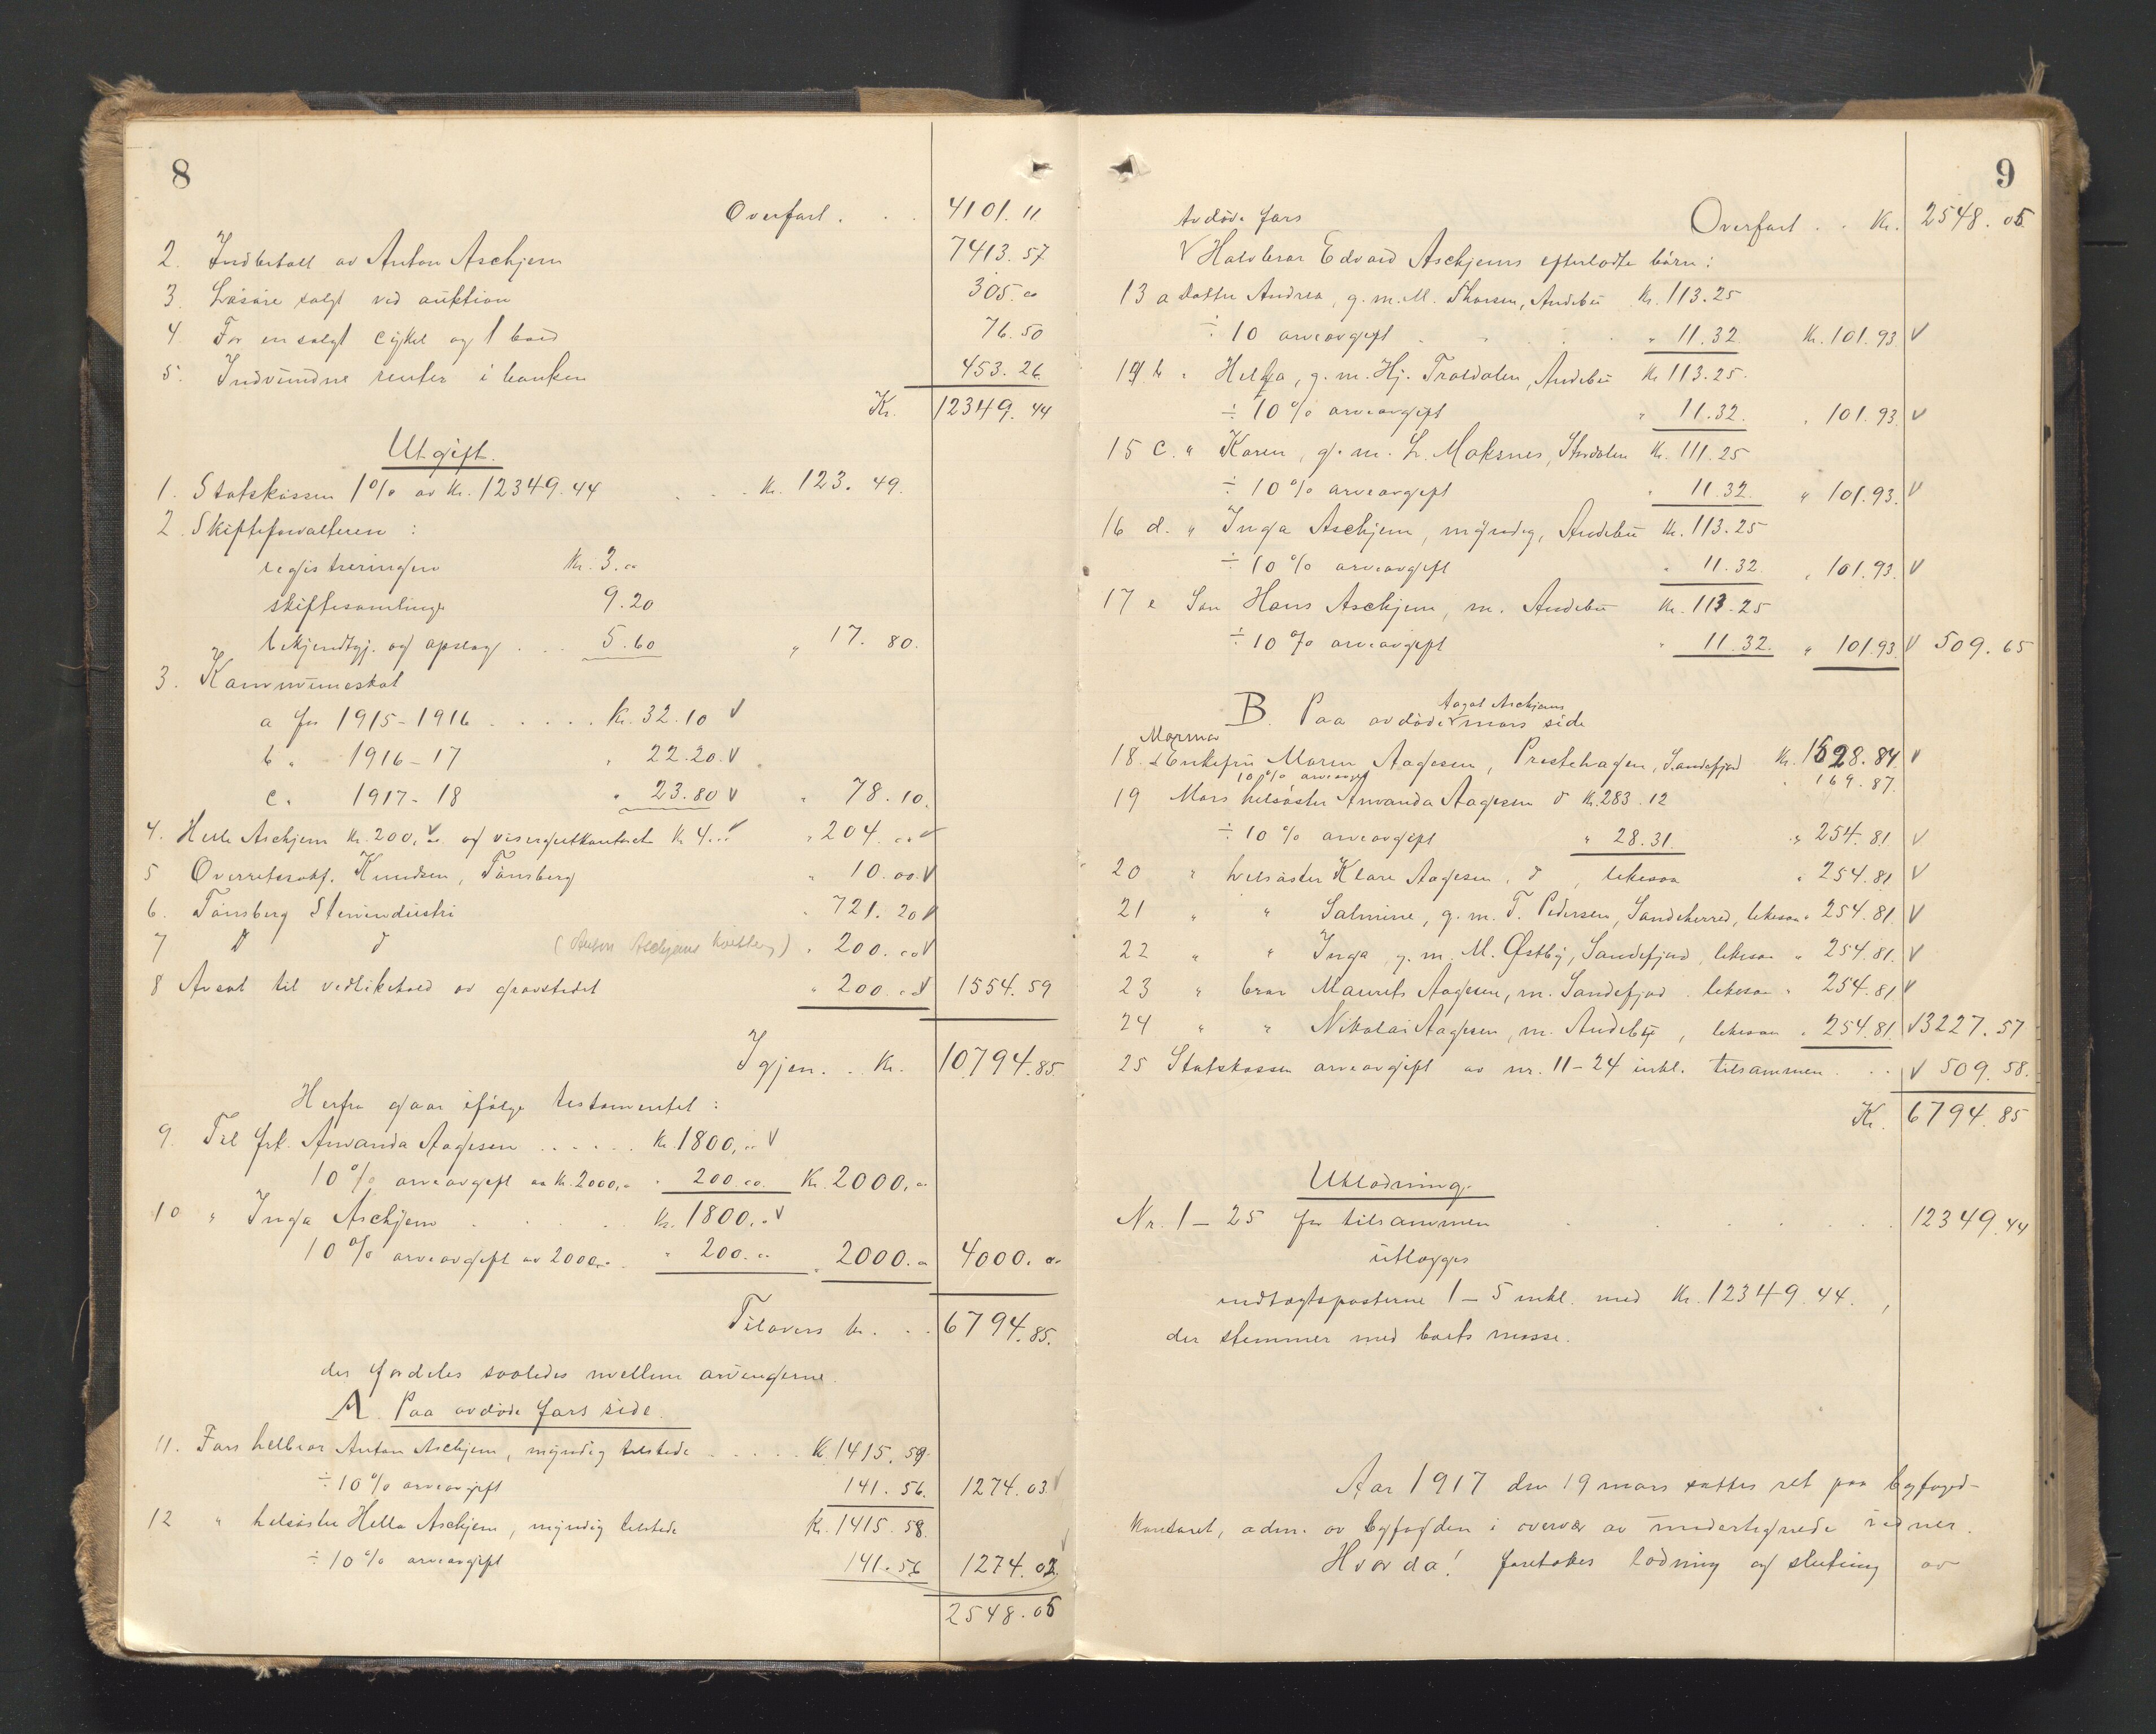 8
Overført . . . 4101. 11
2. Indbetalt av Anton Aschjem 7413. 57
3. Løsøre solgt ved auktion 305. "
4. For en solgt cykel og 1 baad 76. 50
5. Indvundne renter i banken 453. 26
Kr. 12349. 44
Utgift.
1. Statskassen 1% av Kr. 12349. 44 . . . Kr. 123. 49.
2. Skifteforvalteren :
registreringen Kr. 3. "
skiftesamlinger 9. 20
bekjendtgj. og opslag . . . 5. 60 " 17. 80.
3. Kommuneskat
a for 1915-1916 . . . . . Kr. 32. 10 V
b " 1916-17 " 22. 20. V
c. 1917-18 " 23. 80 V " 78. 10.
4. Helle Aschjem Kr. 200, " og visergutkontoret Kr 4. " " 204. "
5 Overretssakf. Knudsen, Tønsberg " 10. 00. V
6. Tønsberg Stenindustri " 721. 20 V
7 D d (Anton Aschjems) " 200. 00 V
8 Avsat til vedlikehold av gravstedet " 200. " V 1554. 59
Igjen . . Kr. 10794. 85
Herfra gaar ifølge testamentet :
9. Til frk. Amanda Aagesen . . . . . Kr. 1800, " V
10% arveavgift av Kr. 2000, " " 200. 00. Kr. 2000, "
10 " Inga Aschjem . . . . Kr. 1800. " V
10% arveavgift av 2000, " " 200. " " 2000. " 4000. "
Tilovers kr. . . 6794. 85.
der fordeles saaledes mellem arvingerne.
A. Paa avdøde fars side.
11. Fars helbror Anton Aschjem, myndig tilstede . . . . . K 1415. 59.
÷ 10% arveavgift 141. 56. 1274. 03. V
12 " helsøster Hella Aschjem, myndig tilstede Kr. 1415. 58.
÷ 10% arveavgift 141. 56 1274. 02. V
2548. 05
9
Overført . . Kr. 2548. 05
Avdøde fars
V Halvbror Edvard Aschjems efterladte børn :
13 a datter Andrea, g. m. M. Thorsen, Andebu Kr. 113. 25
÷ 10 arveavgift . . . . " 11. 32. Kr. 101. 93 V
14 b " Helga, g. m. Hj. Trældalen, Andebu Kr 113. 25.
÷ 10% arveavgift " 11. 32. " 101. 93 V
15 c. " Karen, g. m. L. Moksnes, Stordalen Kr. 111. 25
÷ 10% arveavgift " 11. 32. " 101. 93. V
16 d. " Inga Aschjem, myndig, Andebu Kr. 113. 25
÷ 10% arveavgift " 11. 32. " 101. 93. V
17 e Søn Hans Aschjem, m. Andebu Kr. 113. 25
÷ 10% arveavgift " 11. 32. " 101. 93 V 509. 65
Aagot Aschjems
B. Paa avdøde V mors side
Mormor
18. Enkefru Maren Aagesen, Prestehagen, Sandefjord Kr. 1528. 84. V
10% arveavgift " 169. 87.
19 Mors helsøster Amanda Aagesen d Kr. 283. 12
÷ 10% arveavgift " 28. 31. " 254. 81 V
20 " helsøster Klara Aagesen, d , likesaa " 254. 81 V
21 " " Salmine, g. m. T. Pedersen, Sandeherred, likesaa " 254. 81. V
22 " " Inga, g. m. M. Østby, Sandefjord, likesaa " 254. 81. V
23 " bror Maurits Aagesen, m. Sandefjord. likesaa " 254. 81 V
24 " " Nikolai Aagesen, m. Andebu, likesaa " 254. 81. V 3227. 57
25 Statskassen arveavgift av nr. 11-24 inkl. tilsammen . . . V 509. 58.
Kr. 6794. 85
Utlodning.
Nr. 1 - 25 før tilsammen . . . . . . 12349. 44
utlægges
indtægtsposterne 1 - 5 inkl. med Kr. 12349. 44.,
der stemmer med boets masse.
Aar 1917 den 19 mars sattes ret paa byfoged-
kontoret, adm. av byfogden i overvær av undertegnede vidner.
Hvorda! foretokes lodning og slutning av